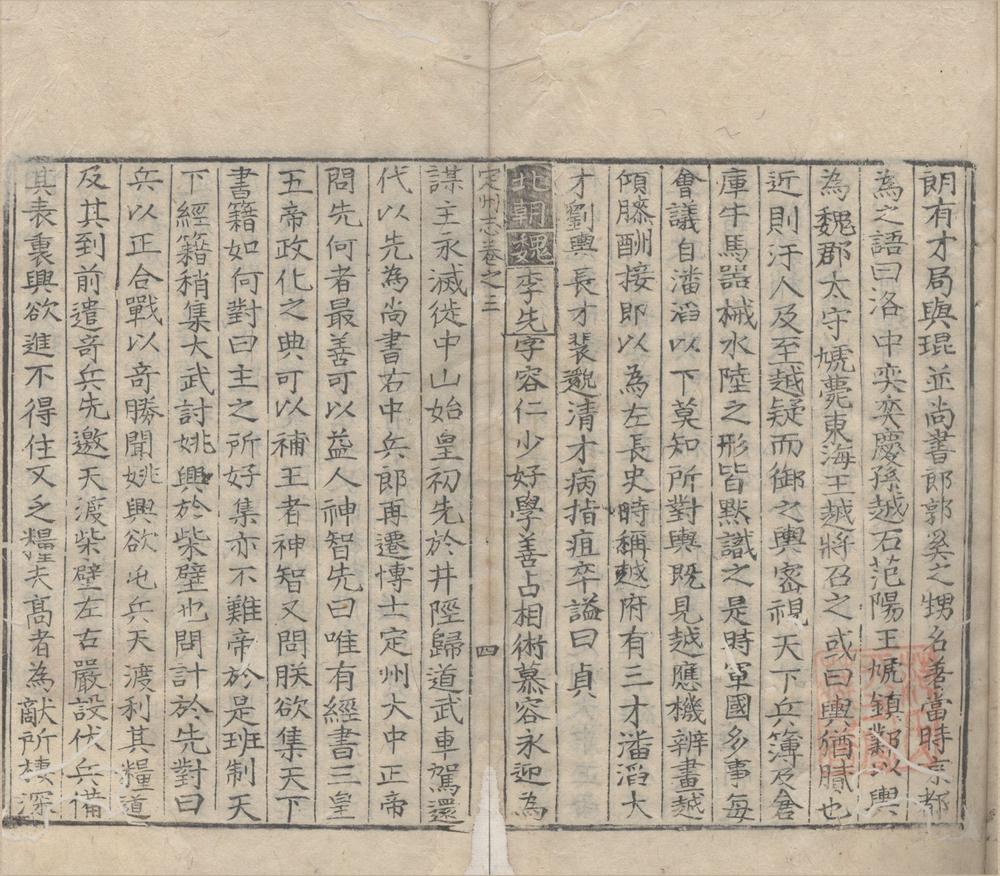 朗有才局與琨並尚書郎郭奕之甥名著當時京都
為之語曰洛中奕奕慶孫越石范陽王虓鎮鄴以輿
為魏郡太守虓薨東海王越將召之或曰輿猶膩也
近則汙人及至越疑而御之輿密視天下兵簿及倉
庫牛馬器械水陸之形皆默識之是時軍國多事每
會議自潘滔以下莫知所對輿既見越應機辨畫越
傾膝酬接即以為左長史時稱越府有三才潘滔大
才劉輿長才裴邈清才病指疽卒謚曰貞
北朝魏李先字容仁少好學善占相術慕容永迎為
定州志卷之三 四
謀主永滅徙中山始皇初先於井陘歸道武車駕還
代以先為尚書右中兵郎再遷博士定州大中正帝
問先何者最善可以益人神智先曰唯有經書三皇
五帝政化之典可以補王者神智又問朕欲集天下
書籍如何對曰主之所好集亦不難帝於是班制天
下經籍稍集大武討姚興於柴壁也問計於先對曰
兵以正合戰以奇勝聞姚興欲屯兵天渡利其糧道
及其到前遣奇兵先邀天渡柴壁左右嚴設伏兵備
其表裏興欲進不得住又乏糧夫高者為敵所棲深